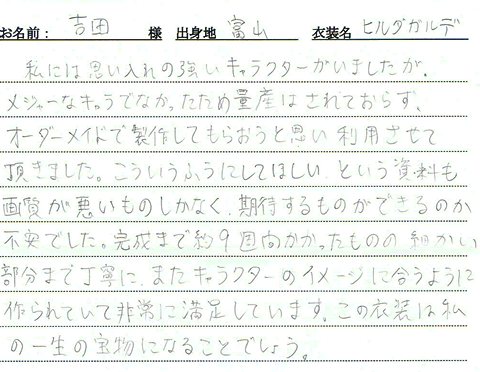 お名前： 吉田 様 出身地 富山 衣装名 ヒルダガルデ
私には思い入れの強いキャラクターがいましたが、
メジャーなキャラでなかったため量産はされておらず、
オーダーメイドで製作してもらおうと思い利用させて
頂きました。こういうふうにしてほしい、という資料も
画質が悪いものしかなく、期待するものができるのか
不安でした。完成まで約9週間かかったものの細かい
部分まで丁寧に、またキャラクターのイメージに合うように
作られていて非常に満足しています。この衣装は私
の一生の宝物になることでしょう。